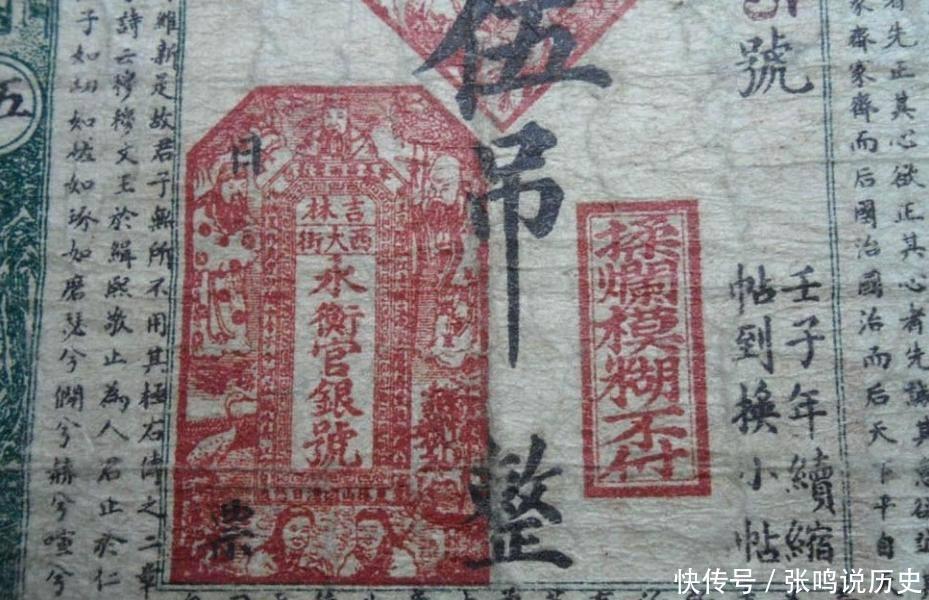 者先正其心欲正其心者先誠其意欲
家齊家齊而后國治國治而后天下平自
號
壬子年續縮
帖到換小帖
揉爛模糊不付
伍吊整
月
票
吉林
西大街
永衡官銀號
右傳之二章
維新是故君子無所不用其極
詩云穆穆文王於緝熙敬止為人君止於仁
子如切如磋如琢如磨瑟兮僩兮赫兮喧兮
五
快传号／张鸣说历史